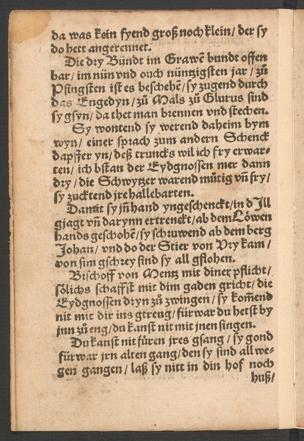 da was kein fyend groß noch klein / der sy
do hett angerennet.
Die dry Bündt im Grawẽ bundt offen
bar / im nün vnd ouch nüntzigsten jar / zů
Pfingsten ist es beschehẽ / sy zugend durch
das Engedyn / zů Mals zů Glurus sind
sy gsyn / da thet man brennen vnd stechen.
Sy wontend sy werend daheim bym
wyn / einer sprach zum andern Schenck
dapffer yn / deß truncks wil ich fry erwar-
ten / ich bstan der Eydgnossen mer dann
dry / die Schwytzer warend můtig vñ fry /
sy zucktend jre hallebarten.
Damit sy jñ hand yngeschenckt / in d' Ill
gjagt vñ darynn ertrenckt / ab dem Löwen
hands geschohẽ / sy schruwend ab dem berg
Johan / vnd do der Stier von Vry kam /
von sim gschrey sind sy all gflohen.
Bischoff von Mentz mit diner pflicht /
sölichs schaffst mit dim gaden gricht / die
Eydgnossen dryn zů zwingen / sy kom̃end
nit mit dir ins gtreng / fürwar du hetst by
jnn zů eng / du kanst nit mit jnen singen.
Du kanst nit füren jres gsang / sy gond
fürwar jrn alten gang / den sy sind all we-
gen gangen / laß sy nitt in din hof noch
huß /